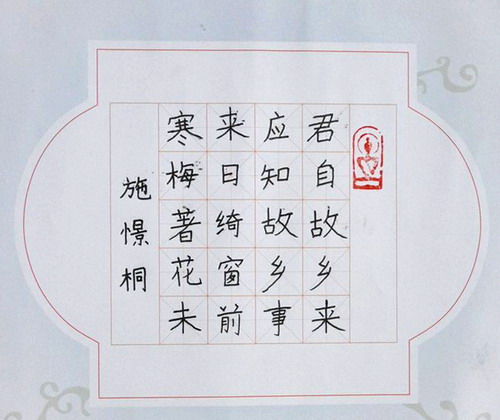 君自故乡来
应知故乡事
来日绮窗前
寒梅著花未
施憬桐